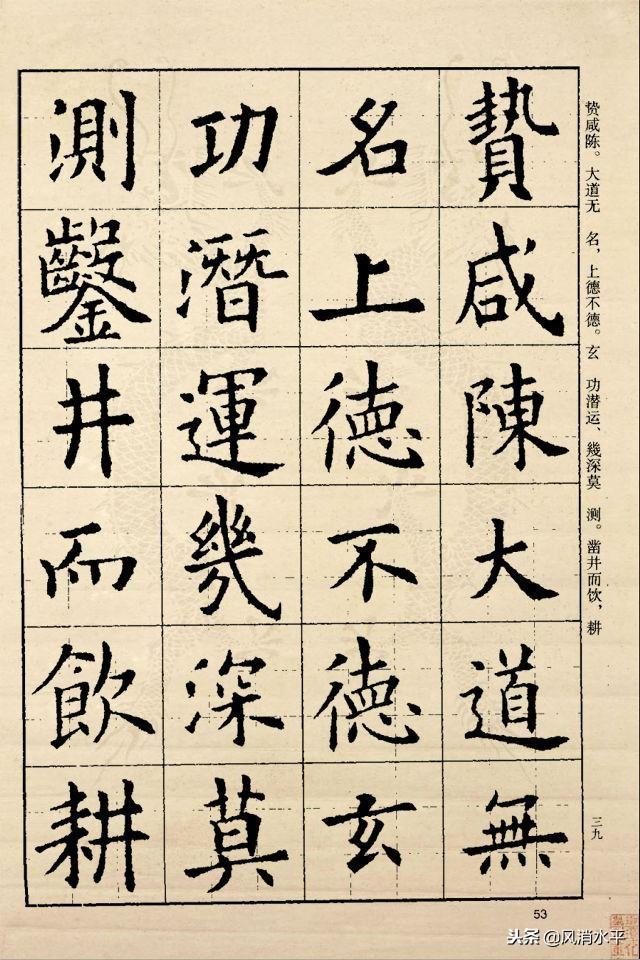 贽咸陈。大道无 名，上德不德。玄 功潜运、幾深莫 测。凿井而饮，耕
贄咸陳大道無
名上德不德玄
功潛運幾深莫
測鑿井而飲耕
三九
53
头条 @风消水平